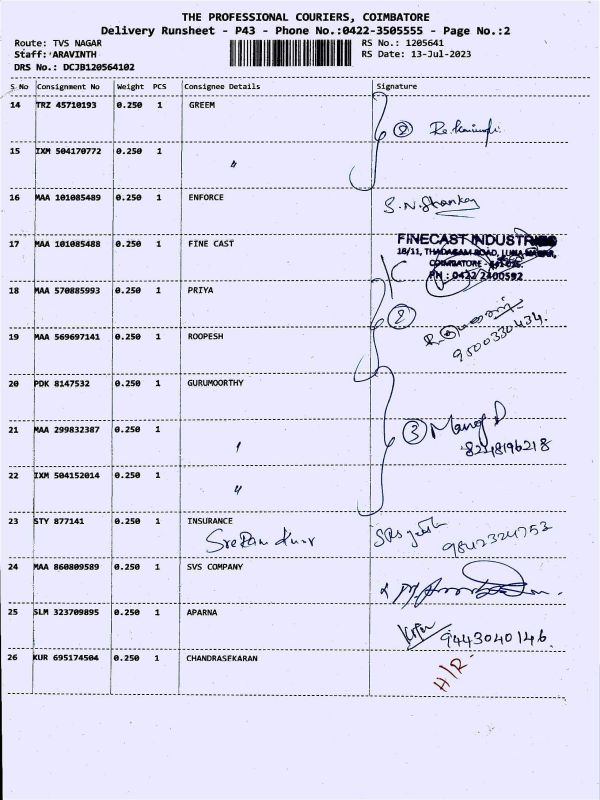 THE PROFESSIONAL COURIERS, COIMBATORE
Delivery Runsheet - P43 - Phone No.:0422-3505555 - Page No.:2
Route: TVS NAGAR RS No.: 1205641
Staff: ARAVINTH RS Date: 13-Jul-2023
DRS No.: DCJB120564102
S No Consignment No Weight PCS Consignee Details Signature
14 TRZ 45710193 0.250 1 GREEM
2
15 IXM 504170772 0.250 1 "
16 MAA 101085489 0.250 1 ENFORCE
S.N.Shankar
17 MAA 101085488 0.250 1 FINE CAST
FINECAST INDUSTRIES
18/11, THADAGAM ROAD,
COIMBATORE -
PH : 0422 2400592
18 MAA 570885993 0.250 1 PRIYA
2
19 MAA 569697141 0.250 1 ROOPESH
9500330434.
20 PDK 8147532 0.250 1 GURUMOORTHY
21 MAA 299832387 0.250 1
3 Manoj D
8248196218
22 IXM 504152014 0.250 1 "
23 STY 877141 0.250 1 INSURANCE
9842324753
24 MAA 860809589 0.250 1 SVS COMPANY
25 SLM 323709895 0.250 1 APARNA
9443040146.
26 KUR 695174504 0.250 1 CHANDRASEKARAN
H/R.